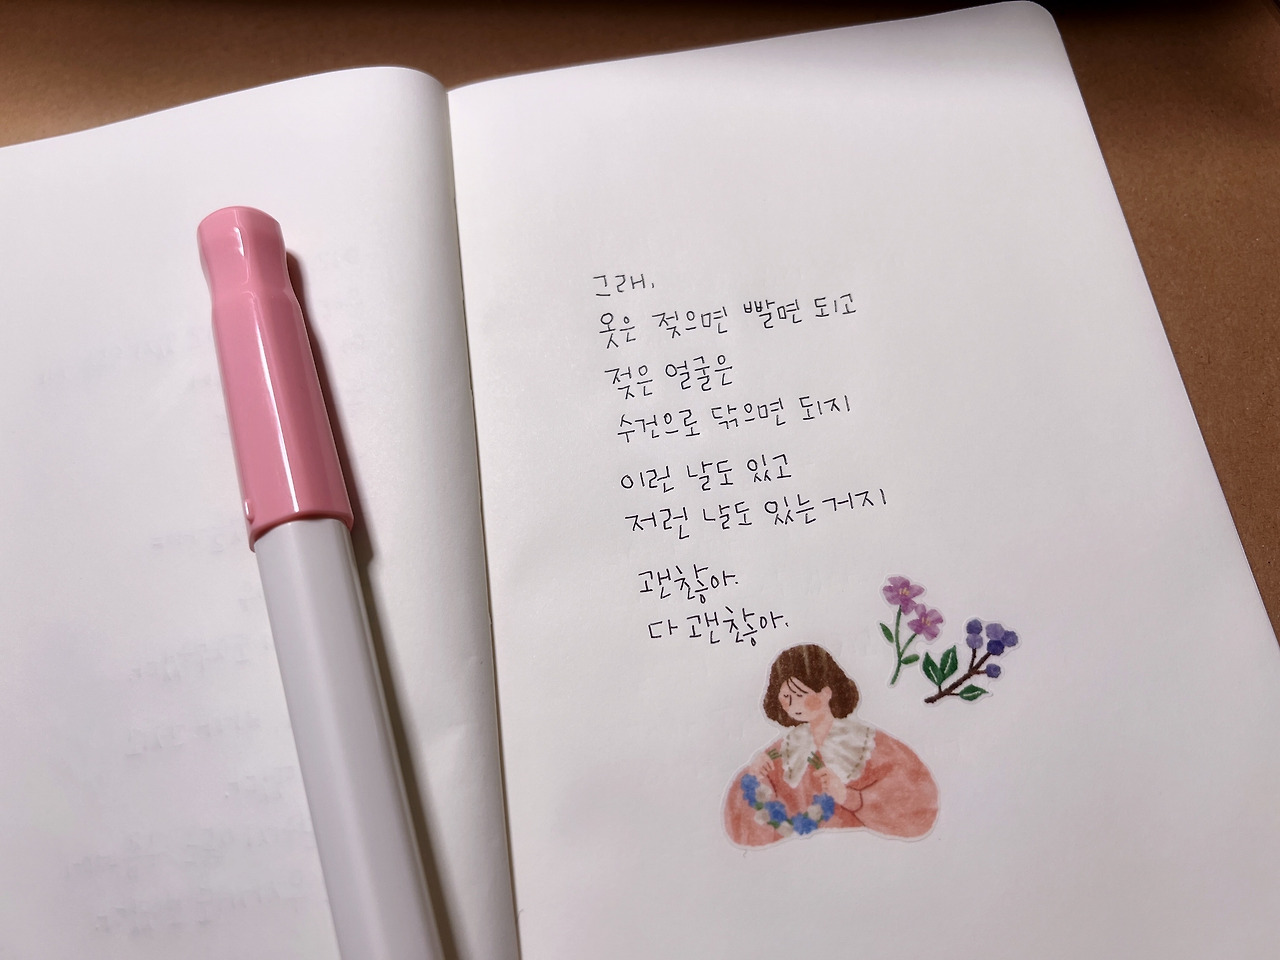 그래,
옷은 젖으면 빨면 되고
젖은 얼굴은
수건으로 닦으면 되지
이런 날도 있고
저런 날도 있는 거지
괜찮아.
다 괜찮아.